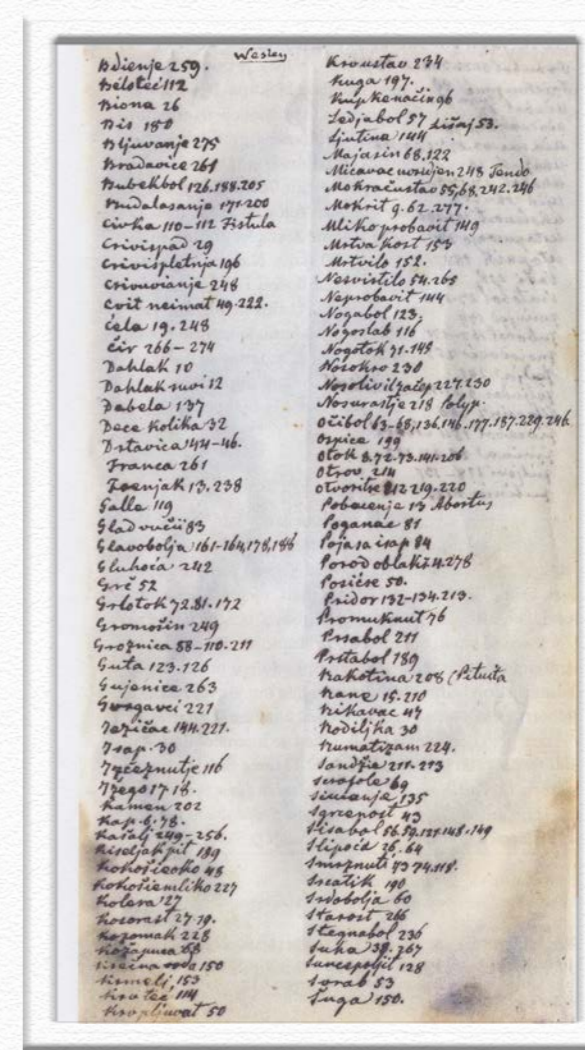 Wesley
Bdienje 259.
Bilsteći 112
Biona 26
Bis 180
Bljuvanje 275
Bradavice 261
Bubekbol 126.188.205
Budalasanje 171-200
Civka 110-112 Fistula
Crivispad 29
Crivispletnja 196
Crivuvianje 248
Cvit neimat 49.222.
Ćela 19.248
Čir 266-274
Dahlak 10
Dahlak suvi 12
Debela 137
Dece Kolika 32
Drtavica 44-46.
Franca 261
13.238
Galle 119
Glad vučii 83
Glavobolja 161-164,178,188
Gluhoća 242
Grč 52
Grlotok 72.81.172
Gromošin 249
Groznica 88-110.211
Guta 123.126
Gujenice 263
221
Jezičac 144.221.
Isap. 30
Izčeznutje 116
Ižego 17.18.
Kamen 202
Kap. 6.78.
Kašalj 249-256.
Kiseljak pit 189
Kokošieoko 48
Kokošiemliko 227
Kolera 27
Kosorast 27.19.
228
Kožapuca 68
150
Krmelj, 153
Krv teć 114
Krv pljuvat 50
Krv ustav 234
Kuga 197.
Kup Kenačin 96
Ledjabol 57 Lišaj 53.
Ljutina 144
Majasin 68.122
Micavac uozdjen 248 Tendo
Mokračustav 55,68.242.246
Mokrit 9.62.277.
Mliko probavit 149
Mrtva Kost 153
Mrtvilo 152.
Nesvistilo 54.265
Neprobavit 144
Nogabol 123;
Nogoslab 116
Nogotok 71.145
Nosokrv 230
227.230
Nosurastje 218 Polyp.
Očibol 63-68,136,146.177.187.229.246.
Ospice 199
Otok 8.72.73.141.206
Otrov 214
212.219.220
Pobacenje 13 Abortus
Poganac 81
Pojasa isap 84
Porod oblakš 4.278
Posiese 50.
Pridor 132-134.213.
Promuknut 76
Prsabol 211
Prstabol 189
Rakotina 208 (Pituita
Rane 15.210
Rikavac 47
Rodiljka 30
Rumatizam 224.
Sandžie 211.213
69
135
43
Sisabol 56.59.121.148.149
Slipoća 26.64
Smrznuti 43 74.118.
190
Srdobolja 60
Starost 266
Stegnabol 236
Suha 38.267
128
Svrab 53
Šuga 150.